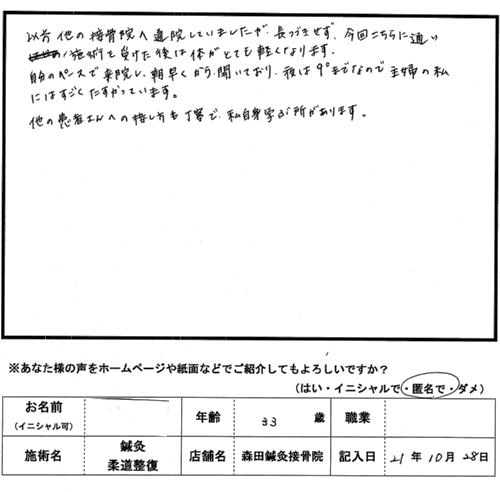 以前他の接骨院へ通院していましたが、長つづきせず、今回こちらに通い
施術を受けた後は体がとても軽くなります。
自分のペースで来院し、朝早くから開いており、夜は9°までなので主婦の私
にはすごくたすかっています。
他の患者さんへの接し方も丁寧で、私自身学ぶ所があります。
※あなた様の声をホームページや紙面などでご紹介してもよろしいですか？
(はい・イニシャルで・匿名で・ダメ)
お名前 年齢 33 歳 職業
(イニシャル可)
施術名 鍼灸 柔道整復 店舗名 森田鍼灸接骨院 記入日 21年10月28日